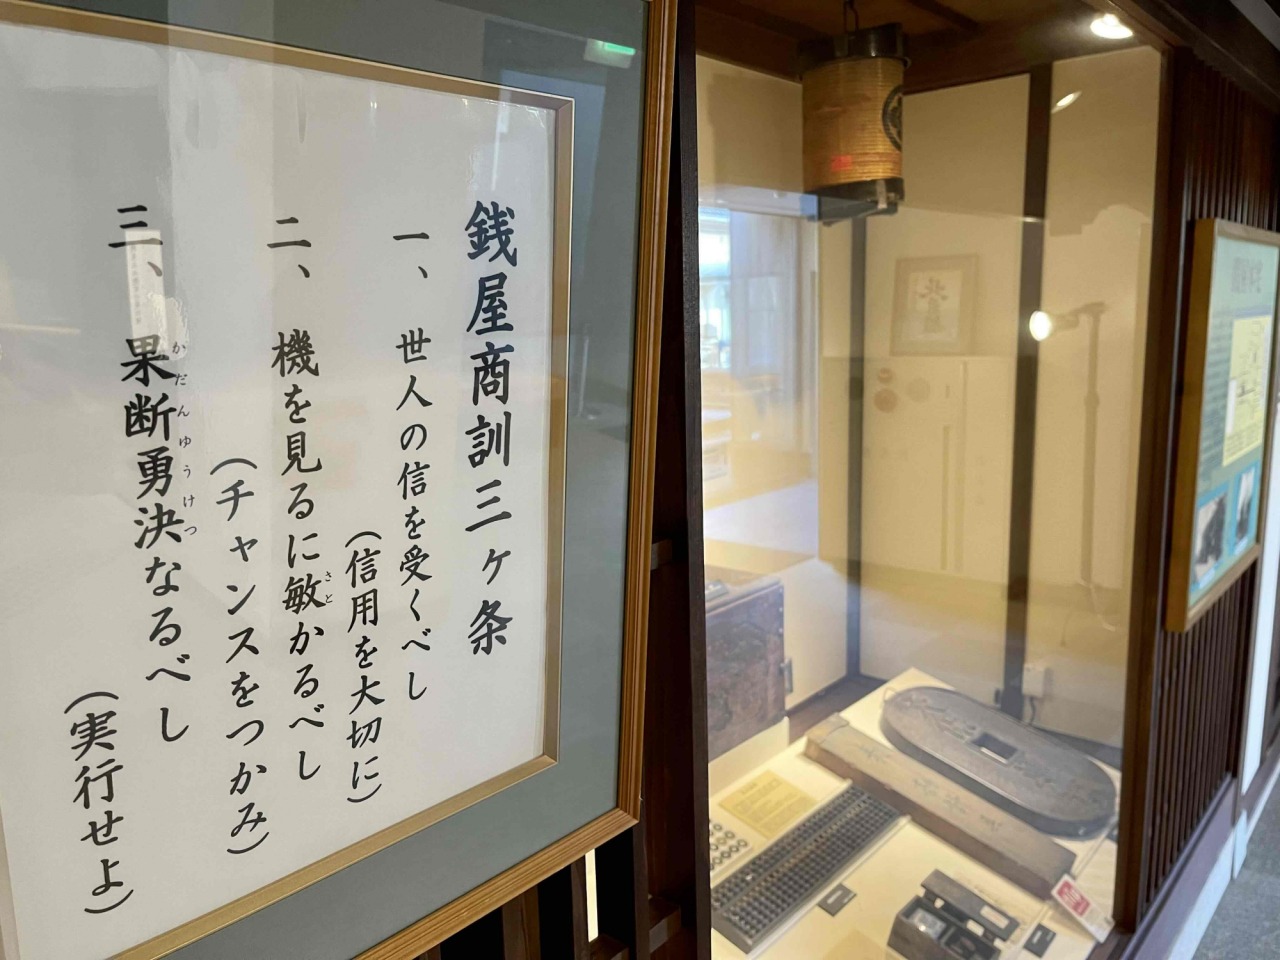 銭屋商訓三ヶ条
一、世人の信を受くべし
(信用を大切に)
二、機を見るに敏かるべし
さと
(チャンスをつかみ)
三、果断勇決なるべし
かだんゆうけつ
(実行せよ)